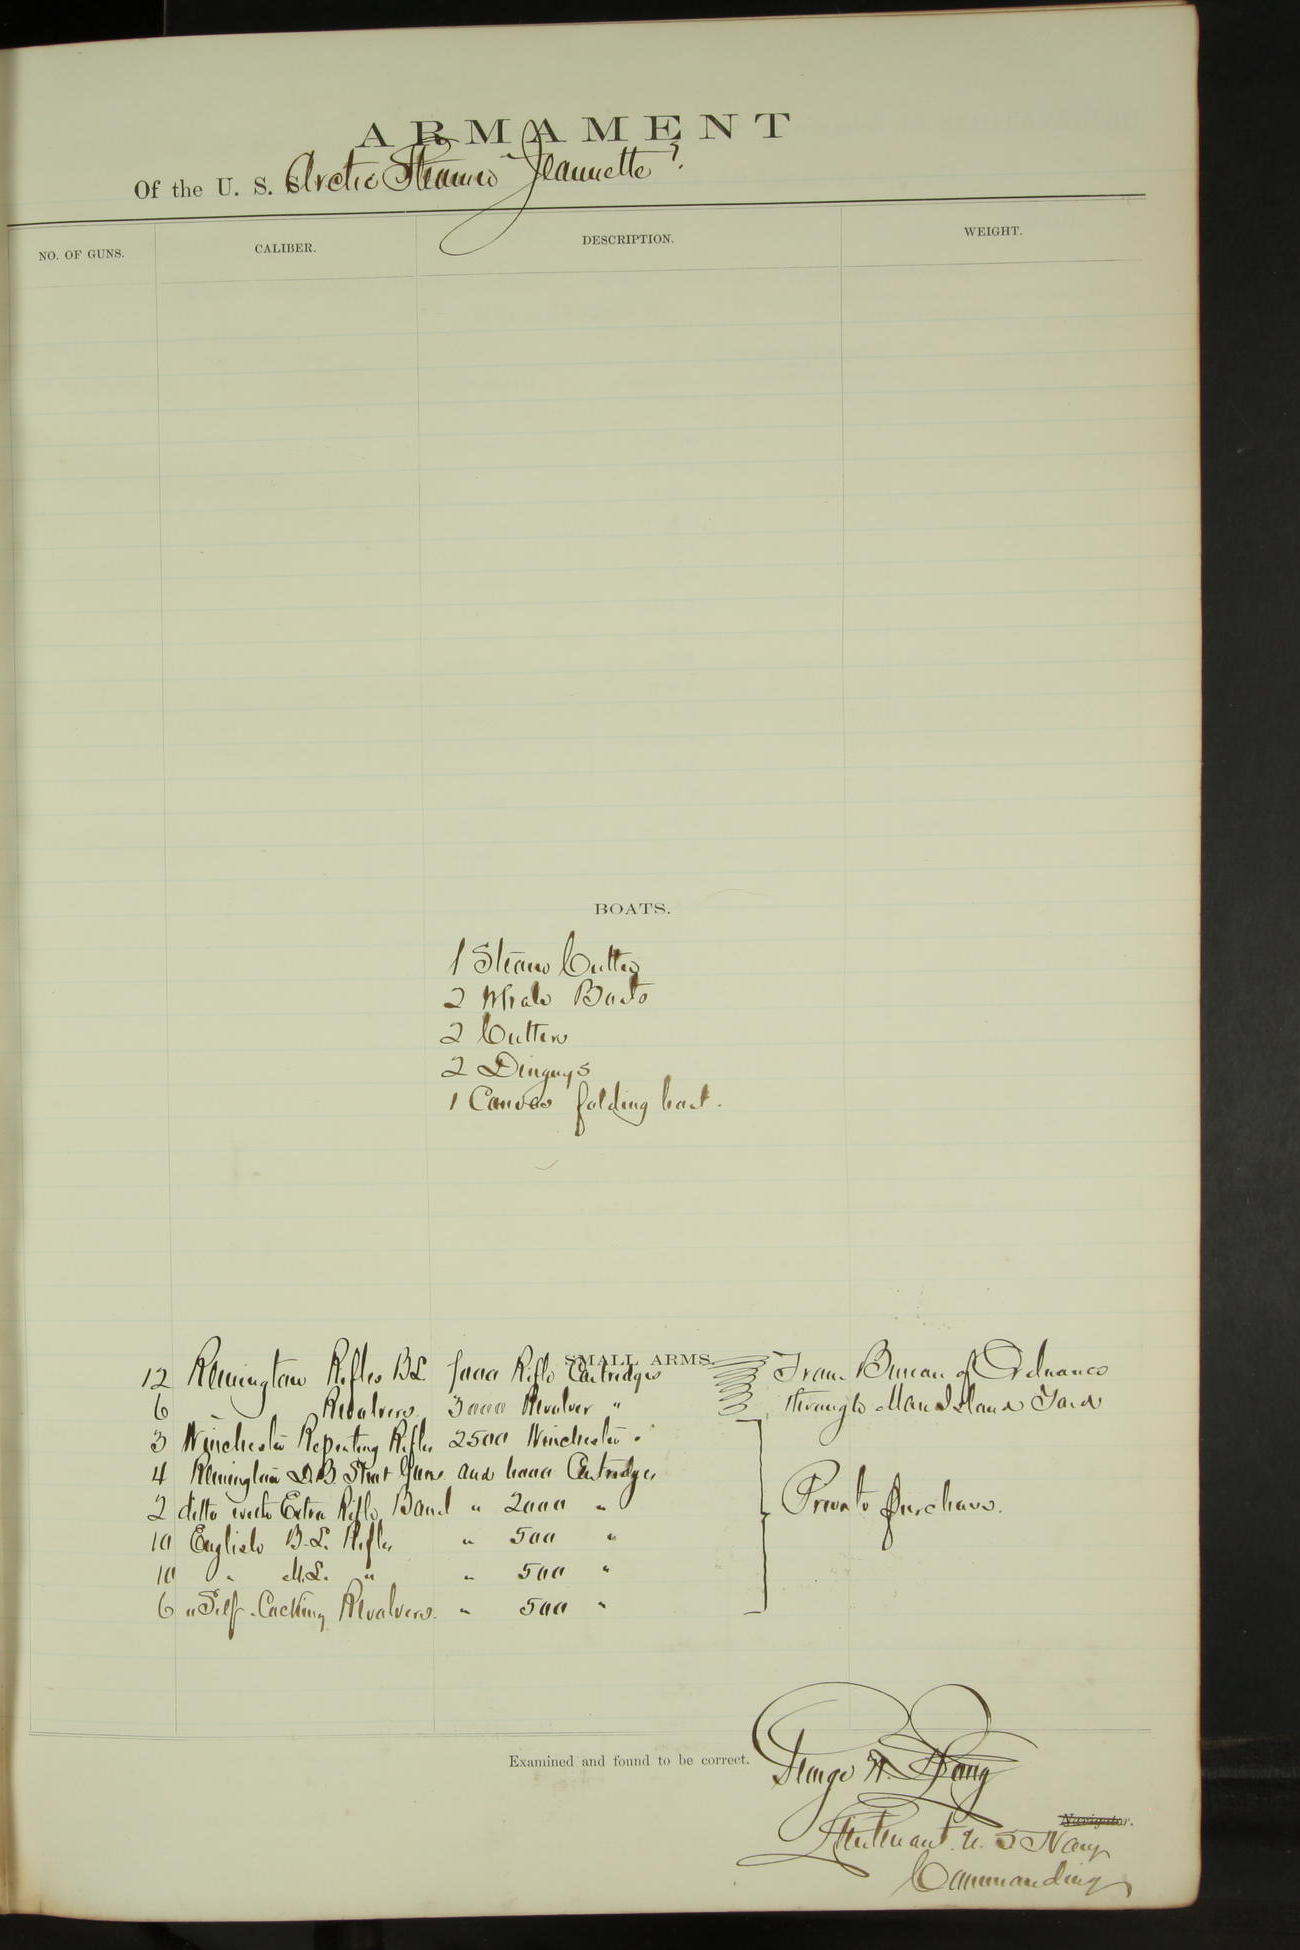 ARMAMENT
Of the U. S. S. Arctic Steamer "Jeannette".
NO. OF GUNS. CALIBER. DESCRIPTION. WEIGHT.
BOATS.
1 Steam Cutter
2 Whale Boats
2 Cutters
2 Dinguys
1 Canvas folding boat.
SMALL ARMS.
12 Remington Rifles BL Rifle Cartridges From Bureau of Ordnance
6 " Revolvers 3000 Revolver " through Mare Island Yard
3 Winchester Repeating Rifles 2500 Winchester "
4 Remington D.B Shot Guns and Cartridges
2 ditto with Extra Rifle Barrel " 2000 " Private purchase.
10 English B.L. Rifles " 500 "
10 " M.L. " " 500 "
6 " Self-Cocking Revolvers. " 500 "
Examined and found to be correct.
George W. De Long
Navigator.
Lieutenant U. S Navy
Commanding